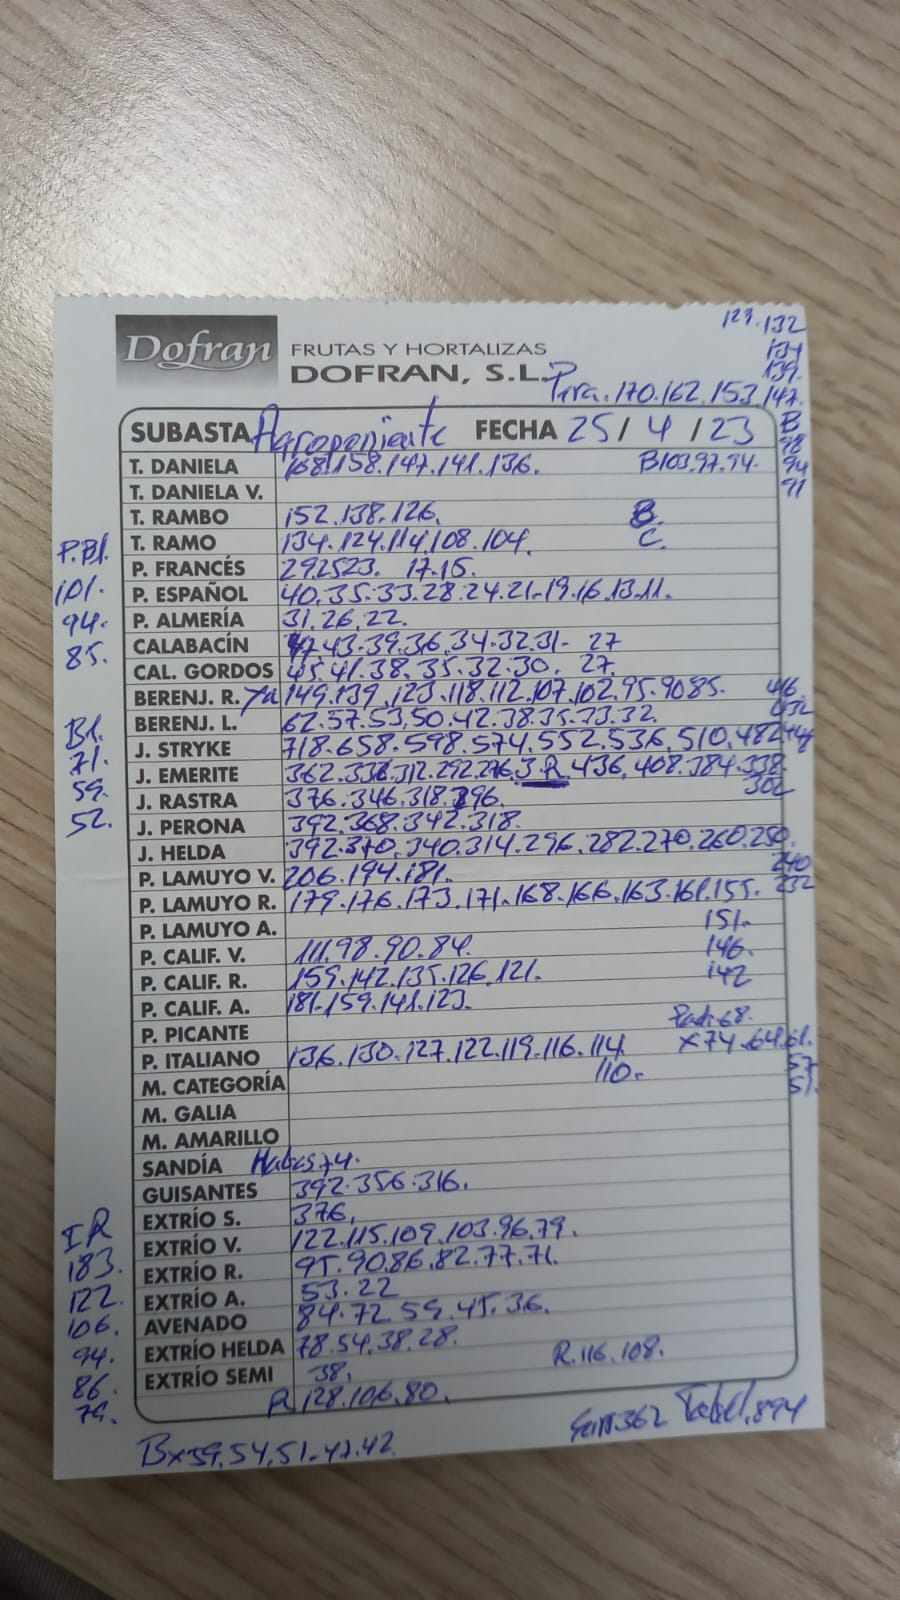 129.132
Dofran FRUTAS Y HORTALIZAS
134
DOFRAN, S.L.
139.
Pra.170.162.153.147.
SUBASTA Agroponiente FECHA 25/4/23
B
98
94
91
T. DANIELA 168.158.147.141.136. B103.97.94.
T. DANIELA V.
T. RAMBO 152.138.126. B.
T. RAMO 134.124.114.108.104. C.
P. FRANCÉS 29.25.23. 17.15.
P. ESPAÑOL 40.35.33.28.24.21.19.16.13.11.
P. ALMERÍA 31.26.22.
P.Bl.
101.
94.
85.
CALABACÍN 47.43.39.36.34.32.31- 27
CAL. GORDOS 45.41.38.35.32.30. 27.
BERENJ. R. Ya 149.139.123.118.112.107.102.95.90.85.
BERENJ. L. 62.57.53.50.42.38.35.33.32.
J. STRYKE 718.658.598.574.552.536.510.482
J. EMERITE 362.336.312.292.276.3.R.436.408.384.338.
302
J. RASTRA 376.346.318.296.
Bl.
71.
59.
52.
J. PERONA 392.368.342.318.
J. HELDA 392.370.340.314.296.282.270.260.250.
240
232
P. LAMUYO V. 206.194.181.
P. LAMUYO R. 179.176.173.171.168.166.163.161.155.
151.
146.
142
P. LAMUYO A.
P. CALIF. V. 111.98.90.84.
P. CALIF. R. 159.142.135.126.121.
P. CALIF. A. 181.159.141.123.
P. PICANTE
68.
x74.64.61.
57
51.
P. ITALIANO 136.130.127.122.119.116.114
110.
M. CATEGORÍA
M. GALIA
M. AMARILLO
SANDÍA Habas 74.
GUISANTES 392.356.316.
EXTRÍO S. 376.
EXTRÍO V. 122.115.109.103.96.79.
EXTRÍO R. 95.90.86.82.77.71.
EXTRÍO A. 53.22
AVENADO 84.72.59.45.36.
EXTRÍO HELDA 78.54.38.28.
R.116.108.
EXTRÍO SEMI 38.
R 128.106.80.
IR
183.
122.
106.
94.
86.
79.
362 894
Bx59.54.51.47.42